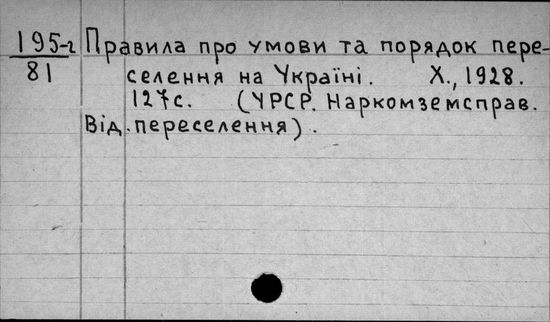 195-г Правила про умови та порядок пере-
81 селення на Україні. Х., 1928.
127с. (УРСР. Наркомземсправ.
Від. переселення).